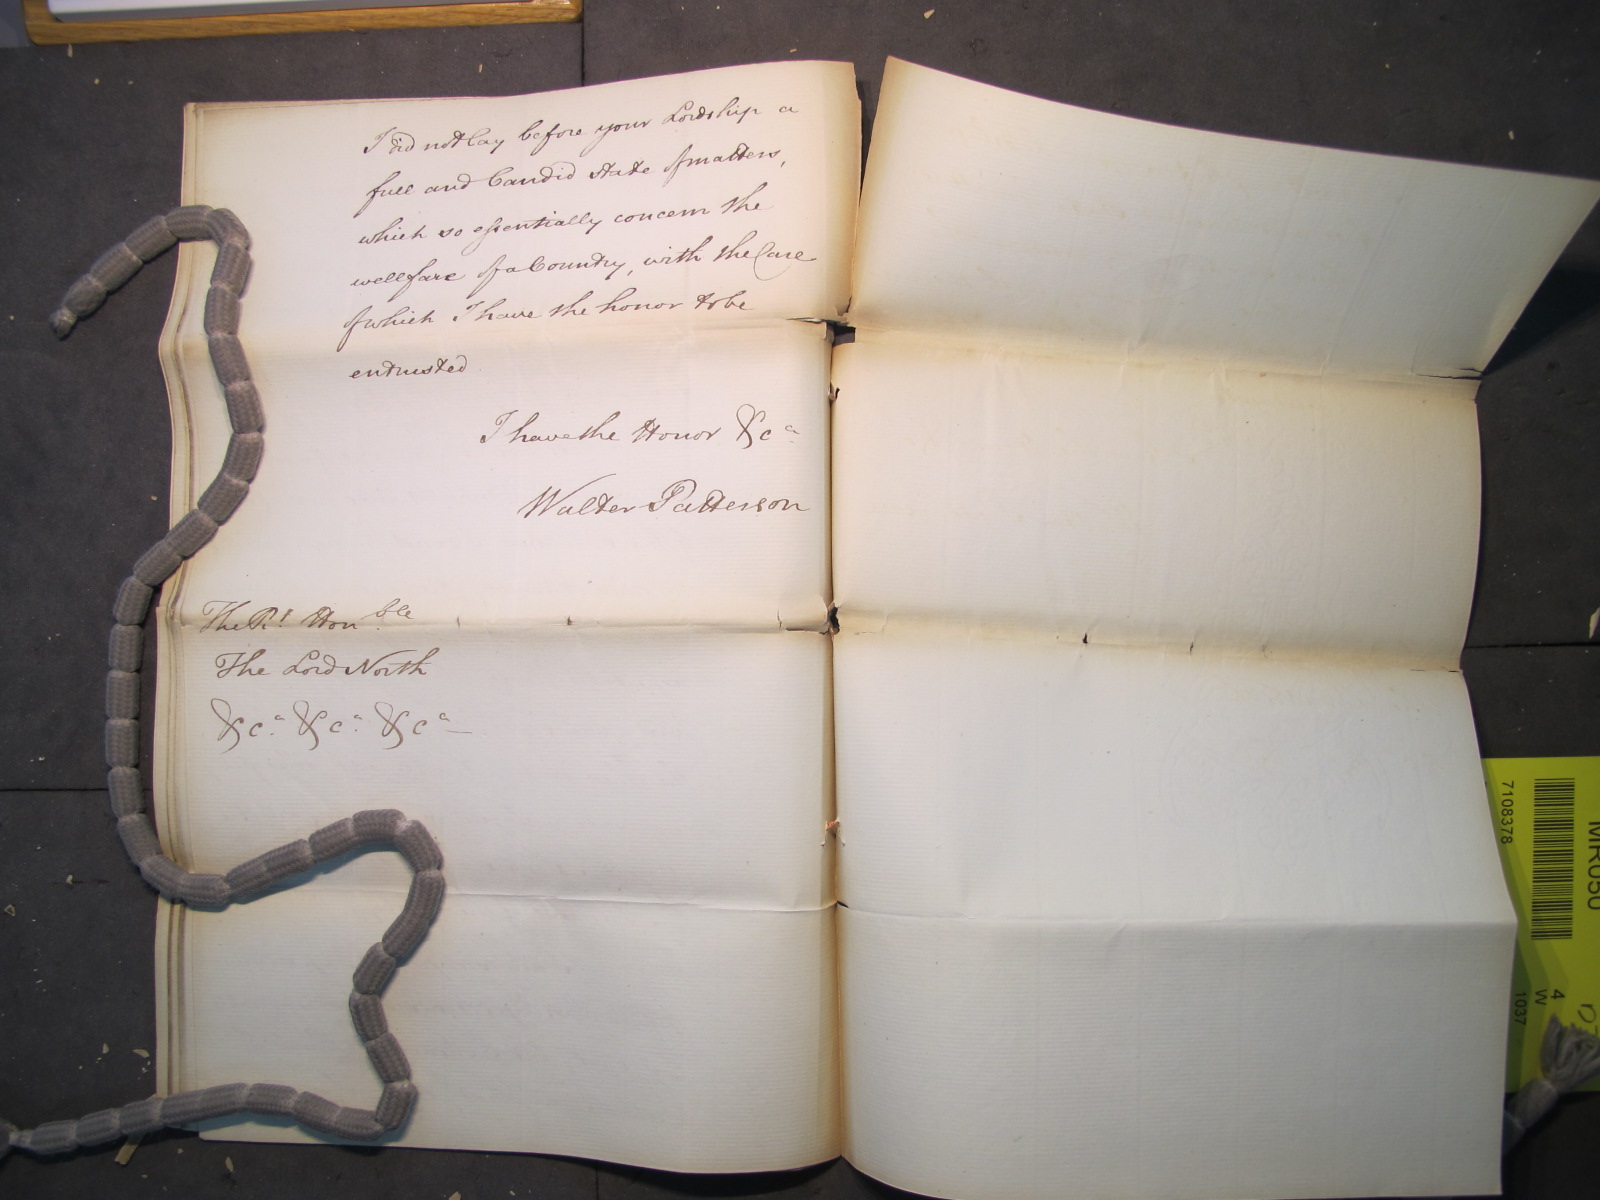 I did not lay before your Lordship a
full and Candid State of matters,
which so essentially concern the
wellfare of a Country, with the Care
of which I have the honor to be
entrusted
I have the Honor &c.a
Walter Patterson
The Rt. Hon.ble
The Lord North
&c.a &c.a &c.a
7108378
MR050
4
W
1037